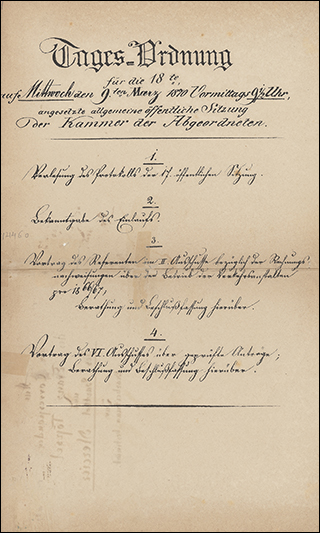 Tages-Ordnung
für die 18te,
auf Mittwoch den 9ten Merz 1870 Vormittags 9½ Uhr,
angesetzte allgemeine öffentliche Sitzung
der Kammer der Abgeordneten.
1.
Verlesung des Protokolls der 17. öffentlichen Sitzung.
2.
Bekanntgabe des Einlaufs.
3.
Vortrag des Referenten im II. Ausschusse bezüglich der Rechnungs-
nachweisungen über den Betrieb der Verkehrsanstalten
pro 1866/67,
Berathung und Beschlußfassung hierüber.
4.
Vortrag des VI. Ausschusses über geprüfte Anträge;
Berathung und Beschlußfassung hierüber.